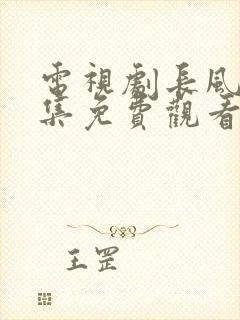 電視劇長風
集免費觀看
王罡